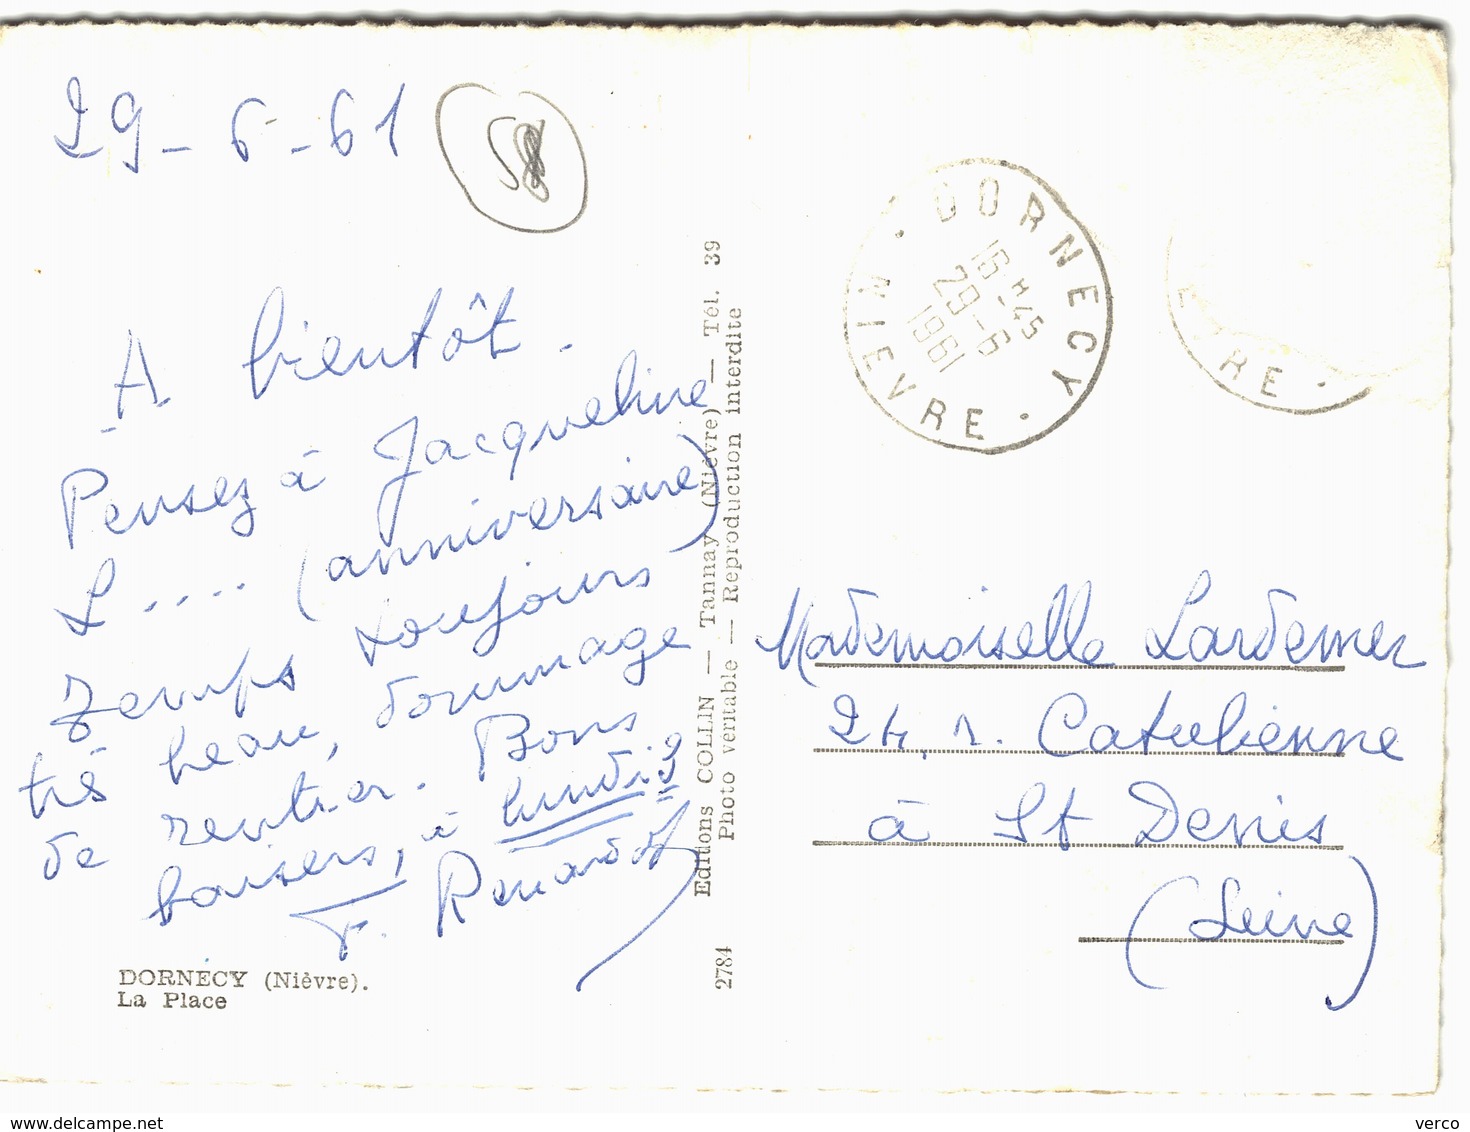 29-6-61
58
A bientôt.
Pensez à Jacqueline
L.... (anniversaire)
Temps toujours
très beau, dommage
de rentrer. Bons
baisers, à lundi
F. Renard
DORNECY (Nièvre).
La Place
2784 Editions COLLIN — Tannay (Nièvre) — Tél. 39
Photo véritable — Reproduction interdite
DORNECY
16H45
29-6
1961
NIEVRE
RE
Mademoiselle Lardemer
24, r. Catulienne
à St Denis
(Seine)
delcampe.net
verco